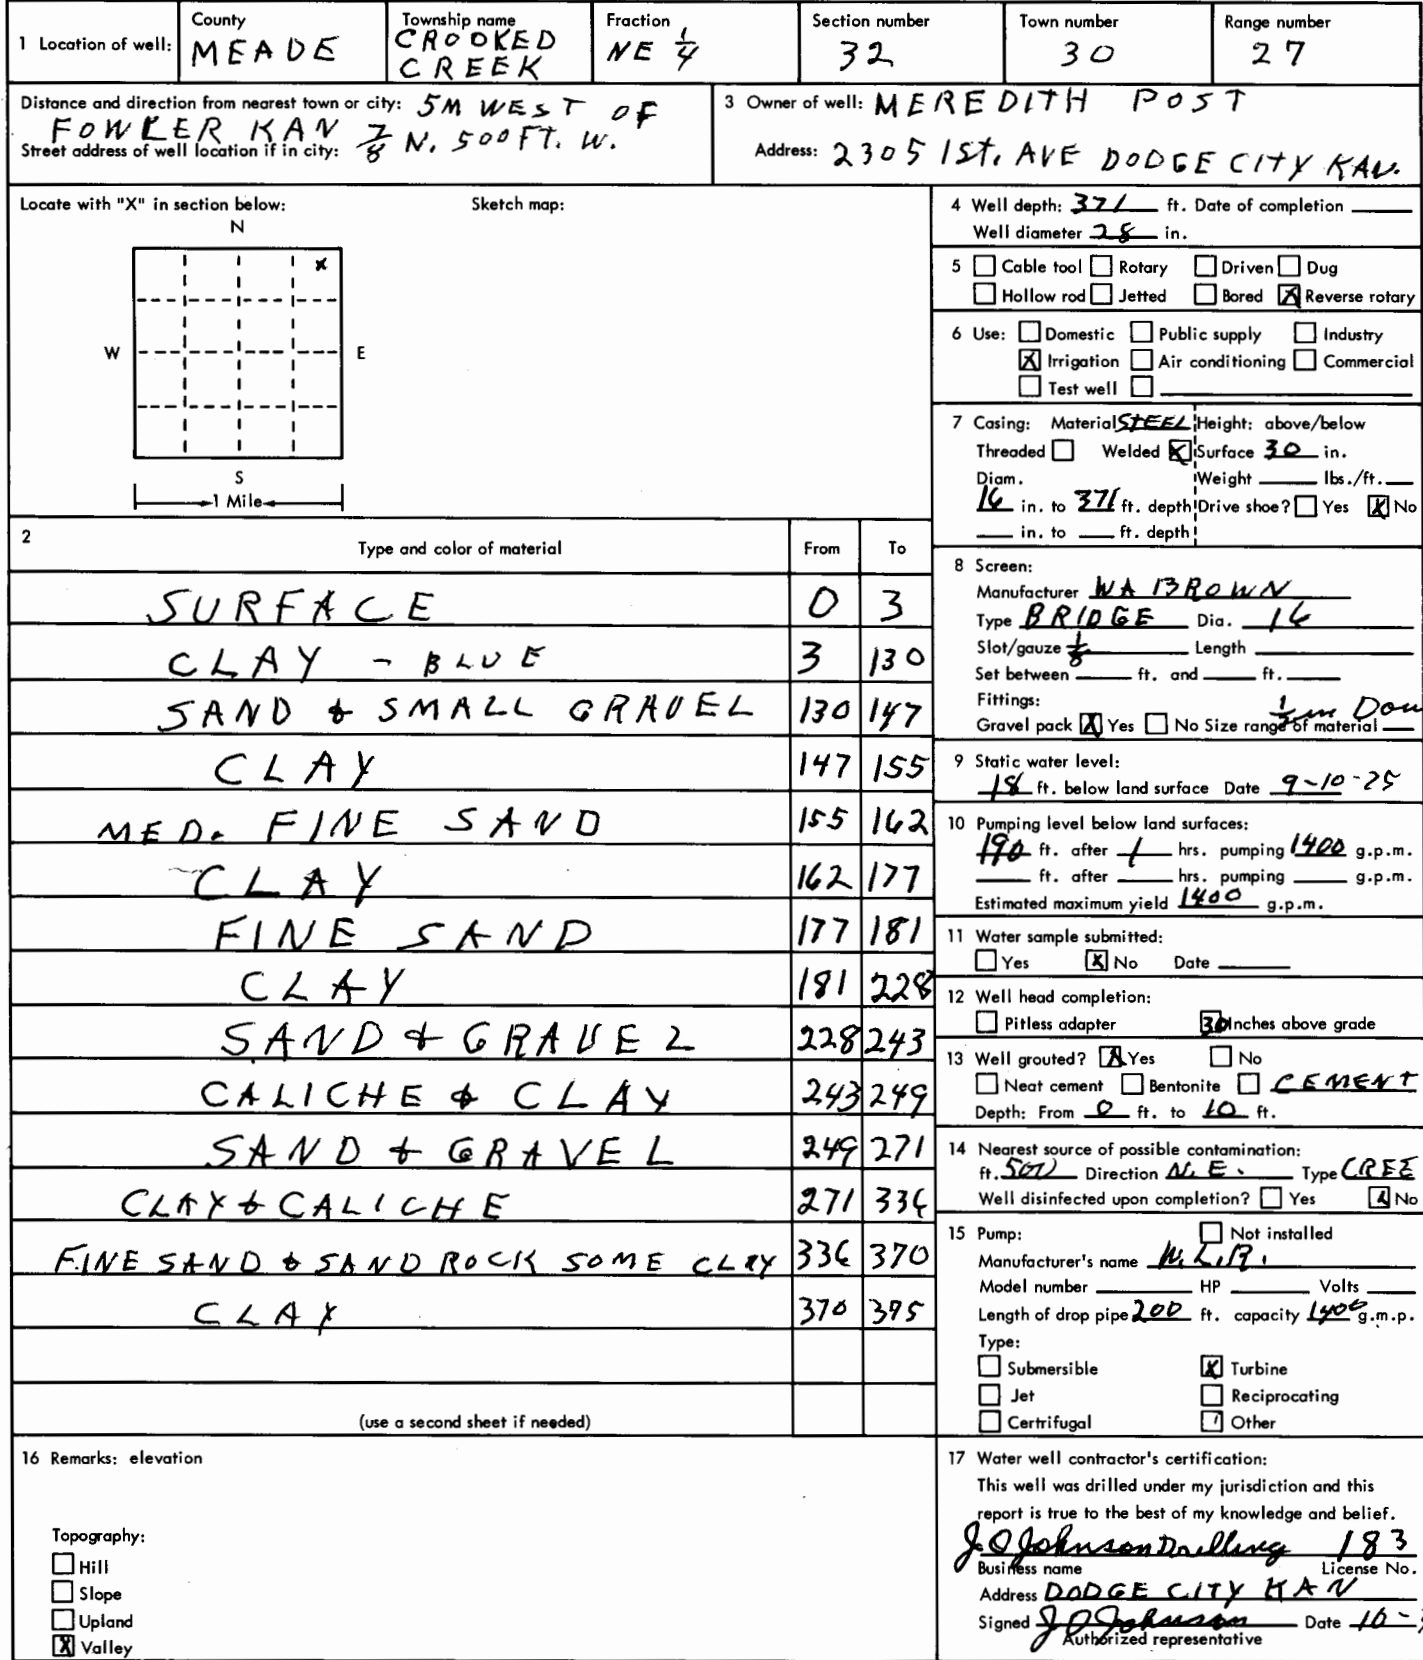 1 Location of well: County MEADE Township name CROOKED CREEK Fraction NE 1/4 Section number 32 Town number 30 Range number 27
Distance and direction from nearest town or city: 5M WEST OF
FOWLER KAN 7/8 N. 500FT. W.
Street address of well location if in city:
3 Owner of well: MEREDITH POST
Address: 2305 1ST. AVE DODGE CITY KAN.
Locate with "X" in section below: Sketch map:
N
X
W E
S
1 Mile
2 Type and color of material From To
SURFACE 0 3
CLAY - BLUE 3 130
SAND & SMALL GRAVEL 130 147
CLAY 147 155
MED. FINE SAND 155 162
CLAY 162 177
FINE SAND 177 181
CLAY 181 228
SAND & GRAVEL 228 243
CALICHE & CLAY 243 249
SAND & GRAVEL 249 271
CLAY & CALICHE 271 336
FINE SAND & SAND ROCK SOME CLAY 336 370
CLAY 370 395
(use a second sheet if needed)
4 Well depth: 371 ft. Date of completion
Well diameter 28 in.
5 Cable tool Rotary Driven Dug
Hollow rod Jetted Bored X Reverse rotary
6 Use: Domestic Public supply Industry
X Irrigation Air conditioning Commercial
Test well
7 Casing: Material STEEL Height: above/below
Threaded Welded X Surface 30 in.
Diam. Weight lbs./ft.
16 in. to 371 ft. depth Drive shoe? Yes X No
in. to ft. depth
8 Screen:
Manufacturer WA BROWN
Type BRIDGE Dia. 16
Slot/gauze 1/8 Length
Set between ft. and ft.
Fittings:
Gravel pack X Yes No Size range of material
9 Static water level:
18 ft. below land surface Date 9-10-75
10 Pumping level below land surfaces:
190 ft. after 1 hrs. pumping 1400 g.p.m.
ft. after hrs. pumping g.p.m.
Estimated maximum yield 1400 g.p.m.
11 Water sample submitted:
Yes X No Date
12 Well head completion:
Pitless adapter 30 Inches above grade
13 Well grouted? X Yes No
Neat cement Bentonite CEMENT
Depth: From 0 ft. to 10 ft.
14 Nearest source of possible contamination:
ft. 500 Direction N.E. Type CREE
Well disinfected upon completion? Yes X No
15 Pump: Not installed
Manufacturer's name
Model number HP Volts
Length of drop pipe 200 ft. capacity 1400 g.m.p.
Type:
Submersible X Turbine
Jet Reciprocating
Certrifugal Other
16 Remarks: elevation
Topography:
Hill
Slope
Upland
X Valley
17 Water well contractor's certification:
This well was drilled under my jurisdiction and this
report is true to the best of my knowledge and belief.
J O Johnson Drilling 183
Business name License No.
Address DODGE CITY KAN
Signed J O Johnson Date 10-
Authorized representative